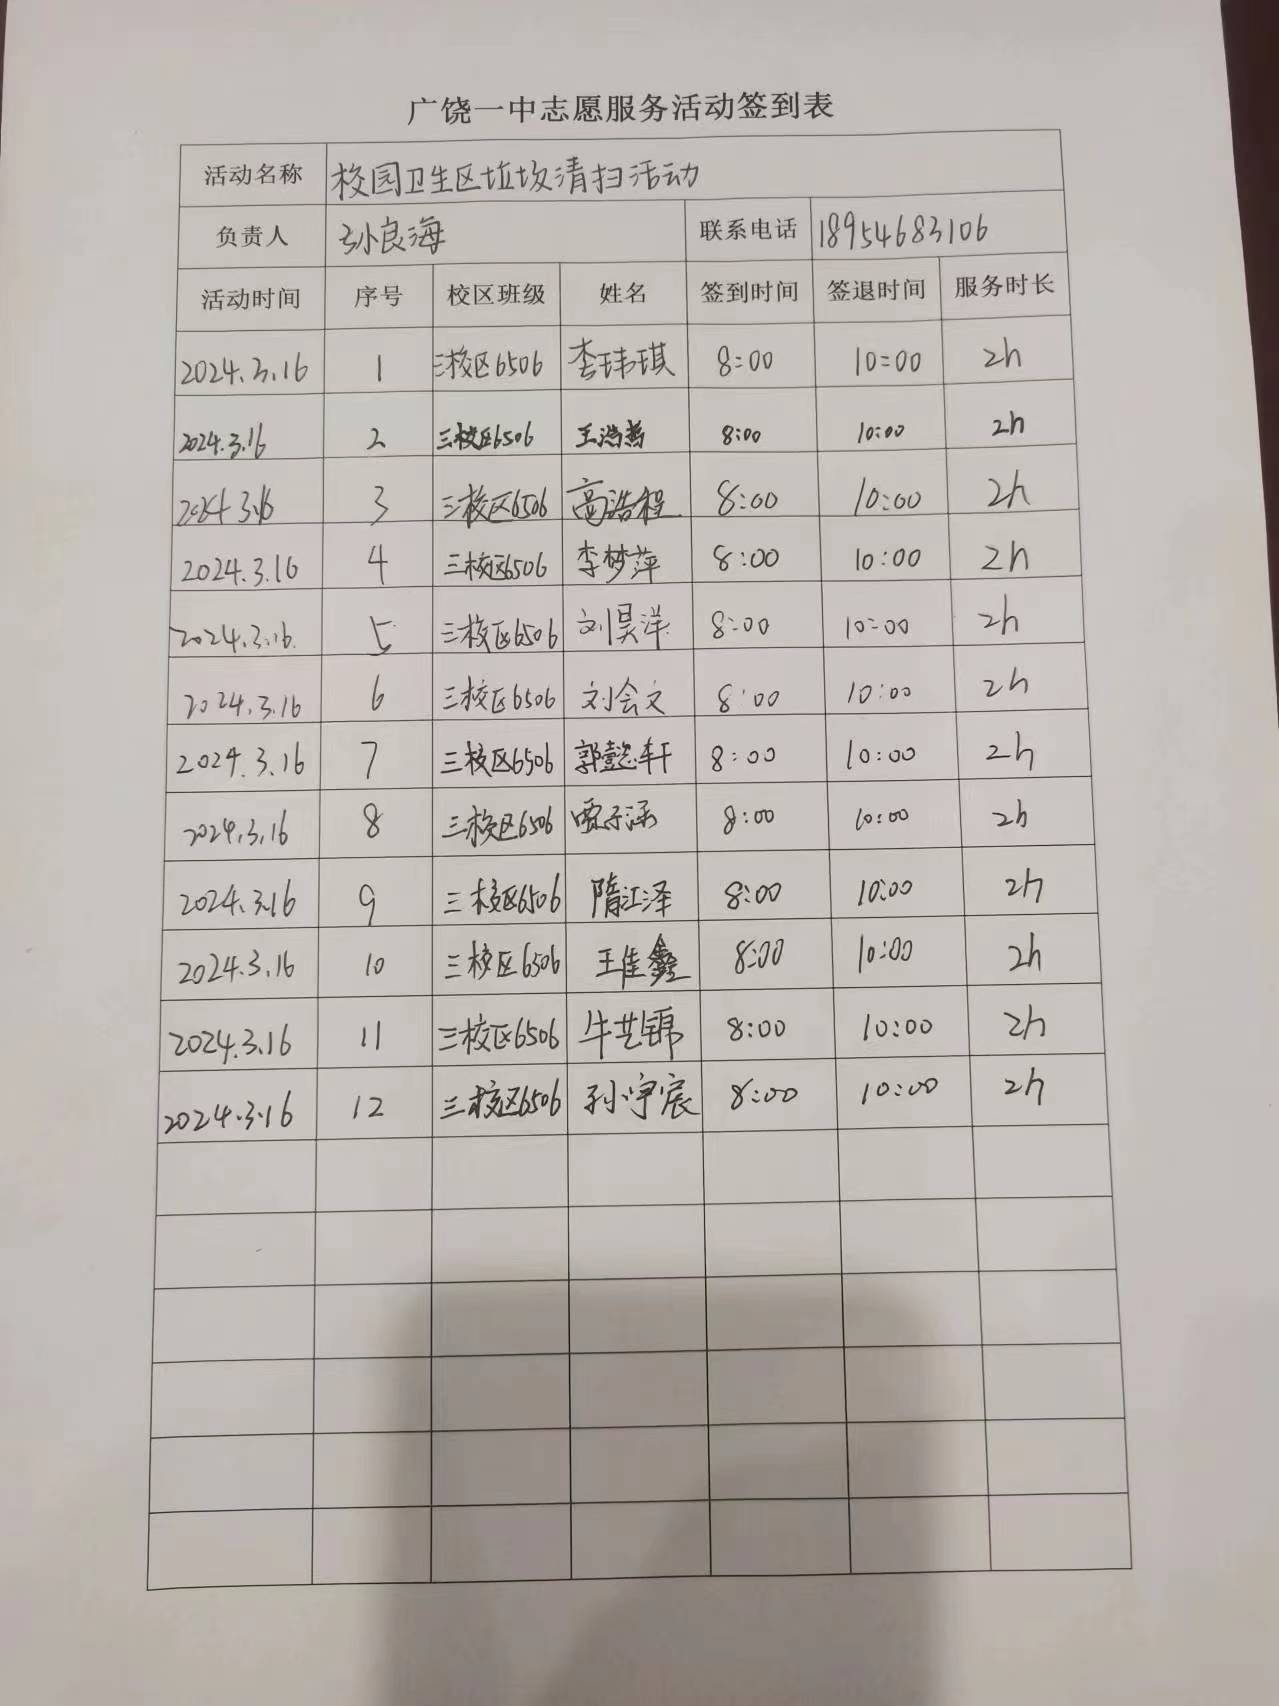 广饶一中志愿服务活动签到表
活动名称 校园卫生区垃圾清扫活动
负责人 孙良海 联系电话 18954683106
活动时间 序号 校区班级 姓名 签到时间 签退时间 服务时长
2024.3.16 1 三校区6506 李玮琪 8:00 10:00 2h
2024.3.16 2 三校区6506 王浩燕 8:00 10:00 2h
2024.3.16 3 三校区6506 高浩程 8:00 10:00 2h
2024.3.16 4 三校区6506 李梦萍 8:00 10:00 2h
2024.3.16. 5 三校区6506 刘昊洋 8:00 10:00 2h
2024.3.16 6 三校区6506 刘会文 8:00 10:00 2h
2024.3.16 7 三校区6506 郭懿轩 8:00 10:00 2h
2024.3.16 8 三校区6506 贾子涵 8:00 10:00 2h
2024.3.16 9 三校区6506 隋江泽 8:00 10:00 2h
2024.3.16 10 三校区6506 王佳鑫 8:00 10:00 2h
2024.3.16 11 三校区6506 牛艺锦 8:00 10:00 2h
2024.3.16 12 三校区6506 孙宇宸 8:00 10:00 2h